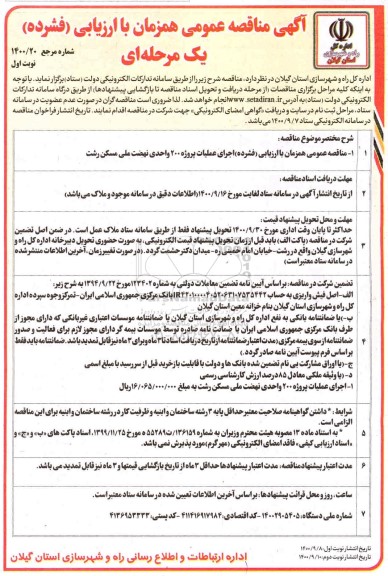 آگهی مناقصه عمومی همزمان با ارزیابی (فشرده)
یک مرحله‌ای
شماره مرجع ۱۴۰۰/۲۰
نوبت اول
اداره کل راه و شهرسازی
استان گیلان
اداره کل راه و شهرسازی استان گیلان در نظر دارد، مناقصه شرح زیر را از طریق سامانه تدارکات الکترونیکی دولت (ستاد) برگزار نماید. با توجه
به اینکه کلیه مراحل برگزاری مناقصات (از مرحله دریافت و تحویل اسناد مناقصه تا بازگشایی پیشنهادها)، از طریق درگاه سامانه تدارکات
الکترونیکی دولت (ستاد) به آدرس www.setadiran.ir انجام خواهد شد. لذا ضروری است مناقصه گران در صورت عدم عضویت در سامانه
ستاد، مراحل ثبت نام در سایت و دریافت «گواهی امضای الکترونیکی» جهت شرکت در مناقصه اقدام نمایند. تاریخ انتشار فراخوان مناقصه
در سامانه الکترونیکی ستاد ۱۴۰۰/۹/۷ می‌باشد.
شرح مختصر موضوع مناقصه:
۱ ۱- مناقصه عمومی همزمان با ارزیابی (فشرده) اجرای عملیات پروژه ۲۰۰ واحدی نهضت ملی مسکن رشت
مهلت دریافت اسناد مناقصه:
۲ از تاریخ انتشار آگهی در سامانه ستاد لغایت مورخ ۱۴۰۰/۹/۱۶ (اطلاعات دقیق در سامانه موجود و ملاک می باشد)
مهلت و محل تحویل پیشنهاد قیمت:
حداکثر تا پایان وقت اداری مورخ ۱۴۰۰/۹/۳۰ تحویل پیشنهاد فقط از طریق سامانه ستاد ملاک عمل است. در ضمن اصل تضمین
۳ شرکت در مناقصه (پاکت الف) باید قبل از زمان تحویل پیشنهاد قیمت الکترونیکی، به صورت حضوری تحویل دبیرخانه اداره کل راه و
شهرسازی گیلان واقع در رشت- خیابان امام خمینی ره- میدان دکتر حشمت گردد. (در صورت تغییر زمان، آخرین اطلاعات منتشر شده
در سامانه ستاد معتبر است)
تضمین شرکت در مناقصه: براساس آیین نامه تضمین معاملات دولتی به شماره ۱۲۳۴۰۲ مورخ ۱۳۹۴/۹/۲۲ به شرح زیر:
گل راه و شهرسازی استان گیلان بنام خزانه معین استان گیلان
ب- یا ضمانتنامه بانکی به نفع اداره کل راه و شهرسازی استان گیلان یا ضمانتنامه موسسات اعتباری غیربانکی که دارای مجوز از
طرف بانک مرکزی جمهوری اسلامی ایران یا ضمانت نامه صادره توسط موسسات بیمه گر دارای مجوز لازم برای فعالیت و صدور
۴ ضمانتنامه از سوی بیمه مرکزی (مدت اعتبار ضمانتنامه از تاریخ دریافت اسناد تا ۳ ماه و برای ۳ ماه نیز قابل تمدید باشد. ضمانتنامه باید فقط
براساس فرم پیوست آیین نامه صادر گردد.)
ج- یا اوراق مشارکت بی نام تضمین شده بانک ها و دولت با قابلیت بازخرید قبل از سررسید با مبلغ اسمی
د- یا وثیقه ملکی معادل ۸۵ درصد ارزش کارشناسی رسمی
۱- اجرای عملیات پروژه ۲۰۰ واحدی نهضت ملی مسکن رشت به مبلغ ۱۶/۰۶۵/۰۰۰/۰۰۰ ریال
شرایط: * داشتن گواهینامه صلاحیت معتبر حداقل پایه ۳ رشته ساختمان و ابنیه و ظرفیت کار در رشته ساختمان و ابنیه برای این مناقصه
الزامی است.
۵ * به استناد ماده ۱۳ مصوبه هیئت محترم وزیران به شماره ۱۳۶۱۵۹/ت۵۵۲۸۹ه مورخ ۱۳۹۹/۱۱/۲۵، اسناد پاکت های «ب» و «ج» و
«اسناد ارزیابی کیفی» فاقد امضای الکترونیکی (مهر گرم) مورد پذیرش نمی باشد.
۶ مدت اعتبار پیشنهاد مناقصه: مدت اعتبار پیشنهادها حداقل ۳ ماه از تاریخ بازگشایی قیمتها و ۳ ماه نیز قابل تمدید می باشد.
ساعت، روز و محل قرائت پیشنهادها: براساس آخرین اطلاعات تعیین شده در سامانه ستاد معتبر است.
۷ شماره ملی دستگاه: ۱۴۰۰۲۹۰۵۴۰۵ -کد اقتصادی: ۴۱۱۴۱۶۹۱۷۹۸۴ -کد پستی: ۴۱۳۶۹۵۳۳۳۳
تاریخ انتشار نوبت اول: ۱۴۰۰/۹/۸
تاریخ انتشار نوبت دوم: ۱۴۰۰/۹/۱۰
اداره ارتباطات و اطلاع رسانی راه و شهرسازی استان گیلان